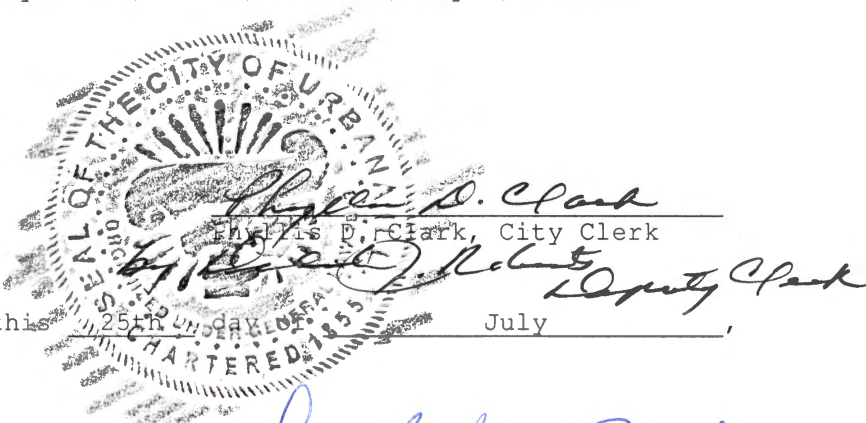 SEAL OF THE CITY OF URBAN
ORGANIZED UNDER GENERAL
CHARTERED 1855
Phyllis D. Clark
Phyllis D. Clark, City Clerk
by, J. Roberts
Deputy Clerk
this 25th day of July,